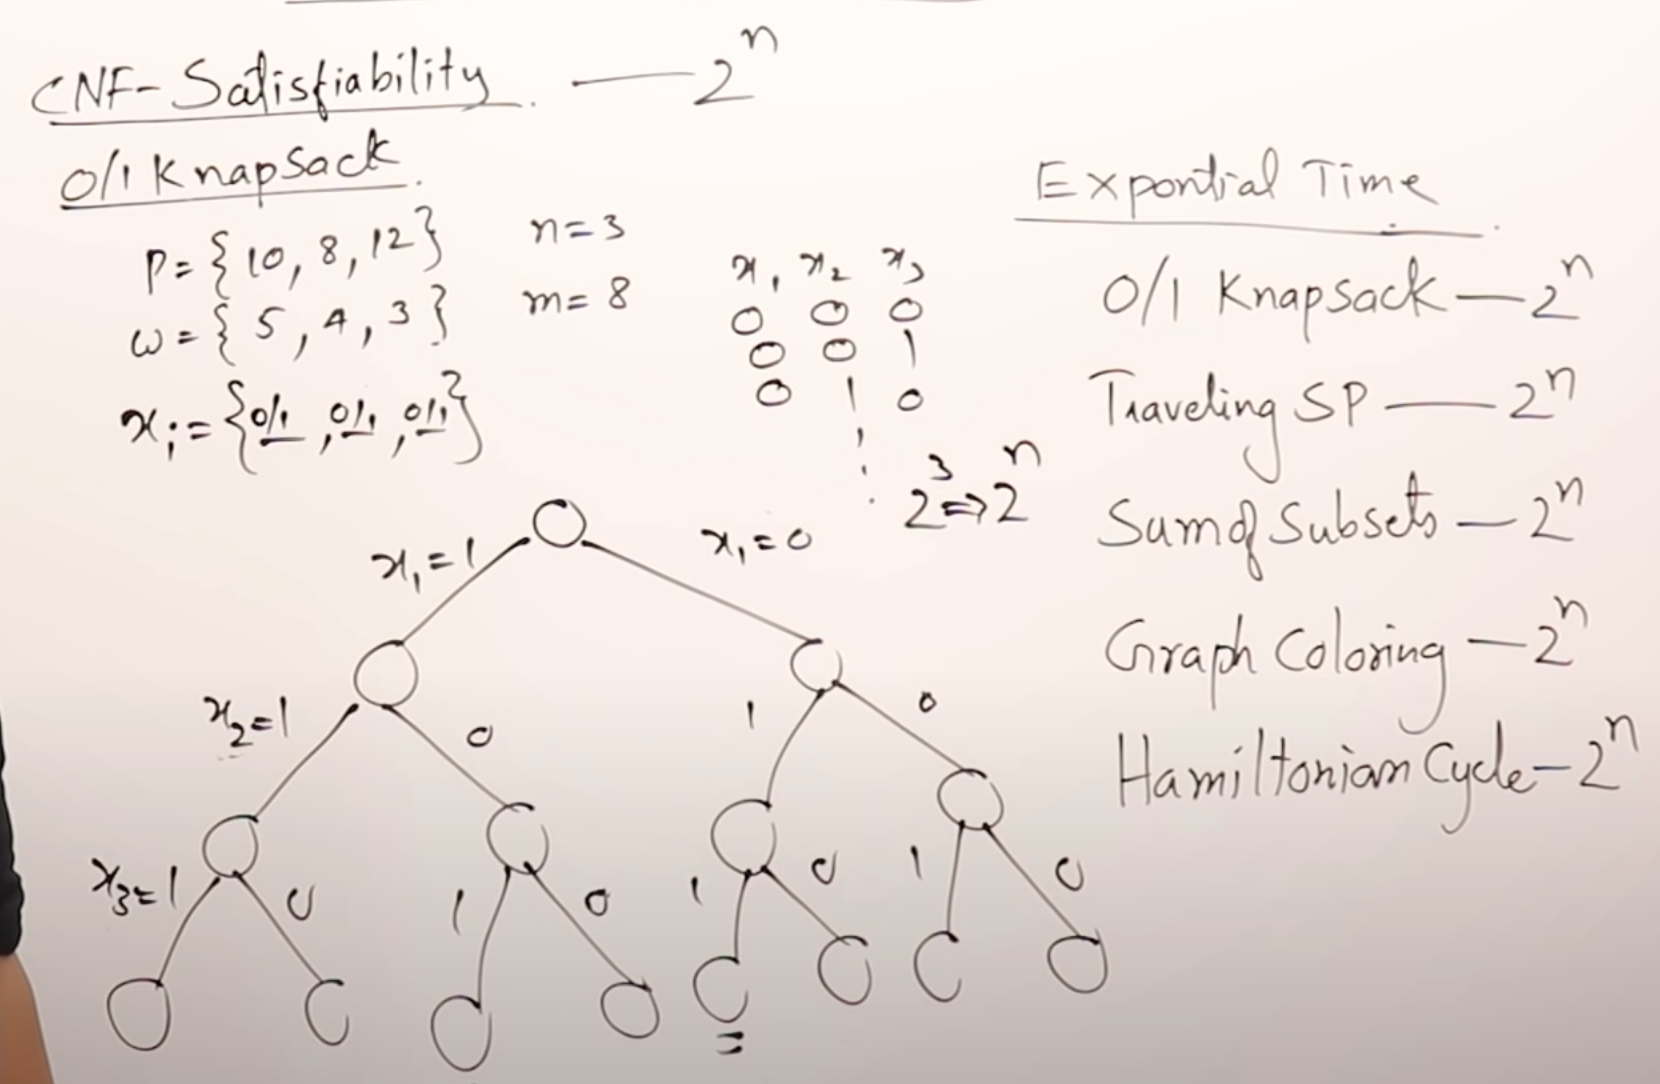 CNF-Satisfiability. — 2^n
0/1 Knapsack.
P = {10, 8, 12} n = 3
w = {5, 4, 3} m = 8
xi = {0/1, 0/1, 0/1}
x1 x2 x3
0 0 0
0 0 1
0 1 0
2^3 ⇒ 2^n
x1 = 1 x1 = 0
x2 = 1 0 1 0
x3 = 1 0 1 0 1 0 1 0
Expontial Time
0/1 Knapsack — 2^n
Traveling SP — 2^n
Sum of Subsets — 2^n
Graph Coloring — 2^n
Hamiltonian Cycle — 2^n